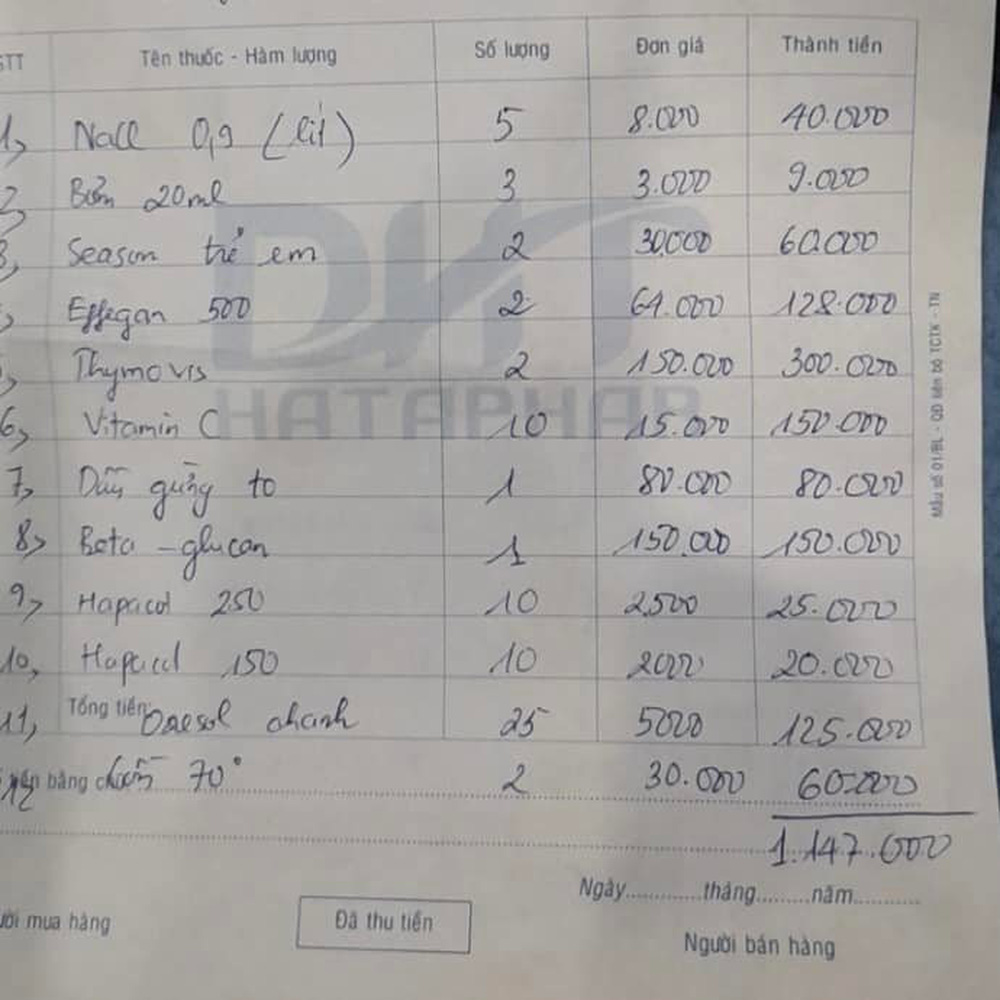 STT Tên thuốc - Hàm lượng Số lượng Đơn giá Thành tiền
1, Nacl 0,9 (lít) 5 8.000 40.000
2, Bơm 20ml 3 3.000 9.000
3, Season trẻ em 2 30,000 60.000
Effegan 500 2 64.000 128.000
Thymovis 2 150.000 300.000
6, Vitamin C 10 15.000 150.000
7, Dầu gừng to 1 80.000 80.000
8, Beta - glucan 1 150.000 150.000
9, Hapacol 250 10 2,500 25.000
10, Hapacol 150 10 2000 20.000
Tổng tiền
11, Oresol chanh 25 5000 125.000
bằng
12 cồn 70° 2 30.000 60.000
1.147.000
Ngày............tháng.........năm...........
ười mua hàng Đã thu tiền Người bán hàng
HATAPHAR
Mẫu số 01/BL - QĐ liên bộ TCTK - TN